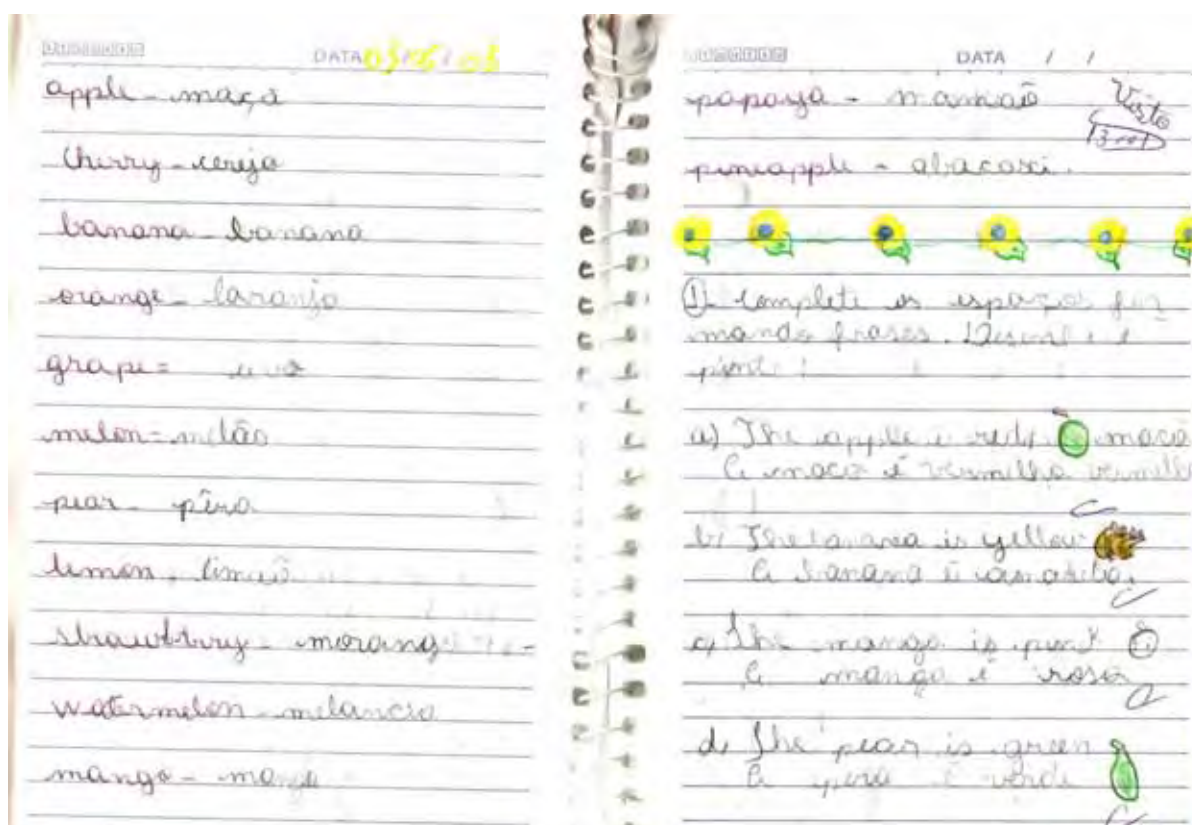 DATA 03/05/05
apple - maçã
Cherry - cereja
banana - banana
orange - laranja
grape = uva
melon = melão
pear - pêra
lemon - limão
strawberry - morango
watermelon - melancia
mango - manga
DATA / /
papaya - mamão
Visto
pineapple - abacaxi.
1) Complete os espaços for
mando frases. Desenhe e
pinte:
a) The apple is red, maçã
A maçã é vermelha vermelh
b) The banana is yellow
A banana é amarela.
c) The mango is pink
A manga é rosa
d) The pear is green
A pera é verde